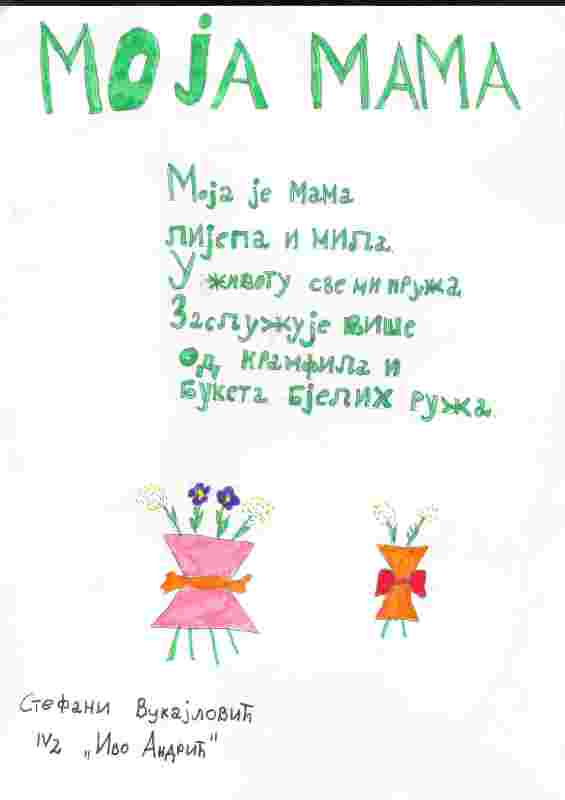 МОЈА МАМА
Моја је мама
лијепа и мила.
У животу све ми пружа.
Заслужује више
од крамфила и
букета бјелих ружа.
Стефани Вукајловић
IV2 „Иво Андрић“